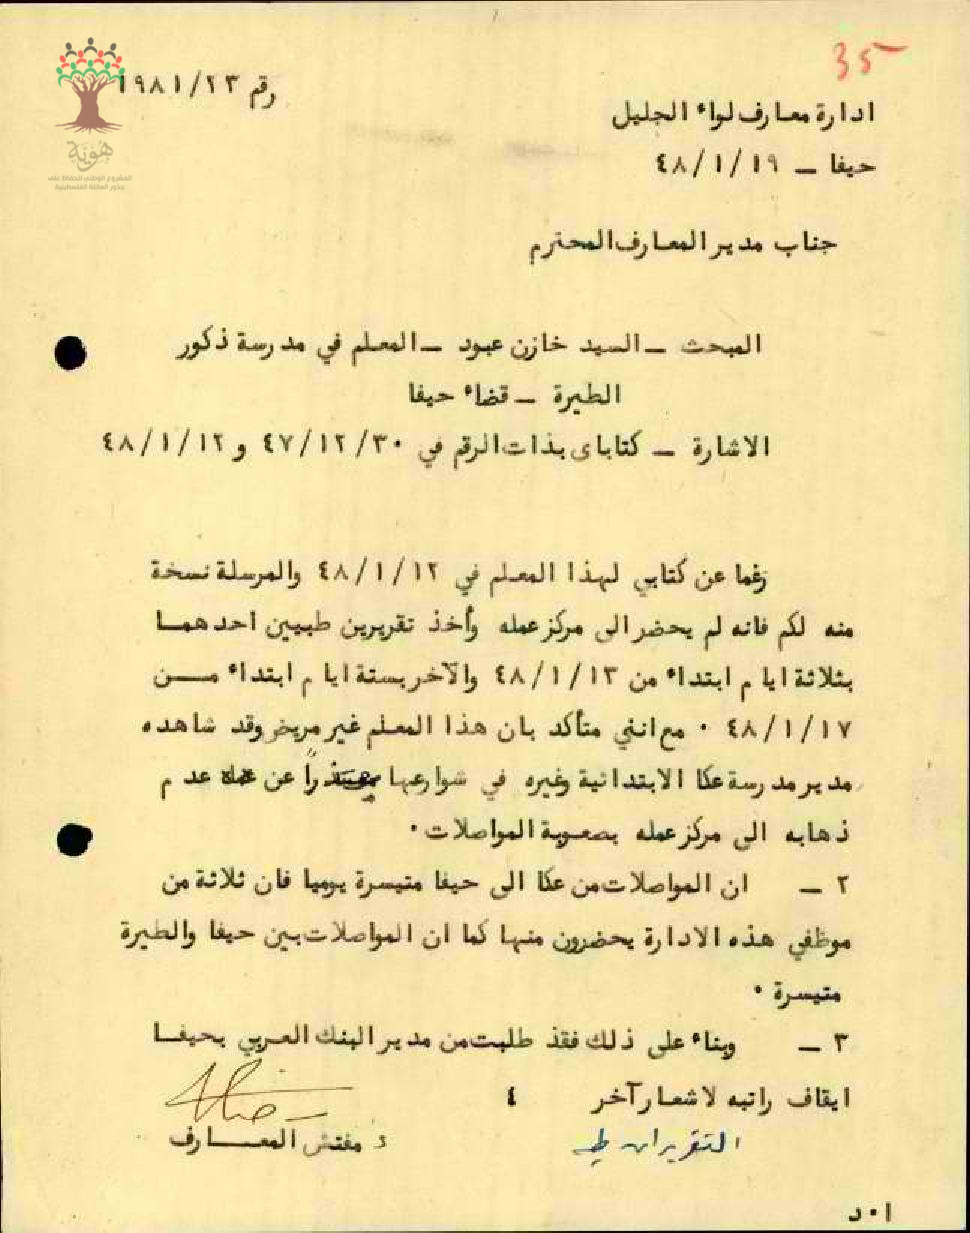 35
رقم ١٩٨١/٢٣
هُوِيَّة
المشروع الوطني للحفاظ على
جذور العائلة الفلسطينية
ادارة معارف لواء الجليل
حيفا ــ ٤٨/١/١٩
جناب مدير المعارف المحترم
المبحث ــ السيد خازن عبود ــ المعلم في مدرسة ذكور
الطيرة ــ قضاء حيفا
الاشارة ــ كتاباى بذات الرقم في ٤٧/١٢/٣٠ و ٤٨/١/١٢
رغما عن كتابي لهذا المعلم في ٤٨/١/١٢ والمرسلة نسخة
منه لكم فانه لم يحضر الى مركز عمله وأخذ تقريرين طبيين احدهما
بثلاثة ايام ابتداء من ٤٨/١/١٣ والآخر بستة ايام ابتداء مــن
٤٨/١/١٧ ٠ مع انني متأكد بان هذا المعلم غير مريض وقد شاهده
مدير مدرسة عكا الابتدائية وغيره في شوارعها معتذراً عن عدم
ذهابه الى مركز عمله بصعوبة المواصلات ٠
٢ ــ ان المواصلات من عكا الى حيفا متيسرة يوميا فان ثلاثة من
موظفي هذه الادارة يحضرون منها كما ان المواصلات بين حيفا والطيرة
متيسرة ٠
٣ ــ وبناء على ذلك فقد طلبت من مدير البنك العربي بحيفــا
ايقاف راتبه لاشعار آخر ٤
التقريران طيه
مفتش المعــــارف
ا ٠ د